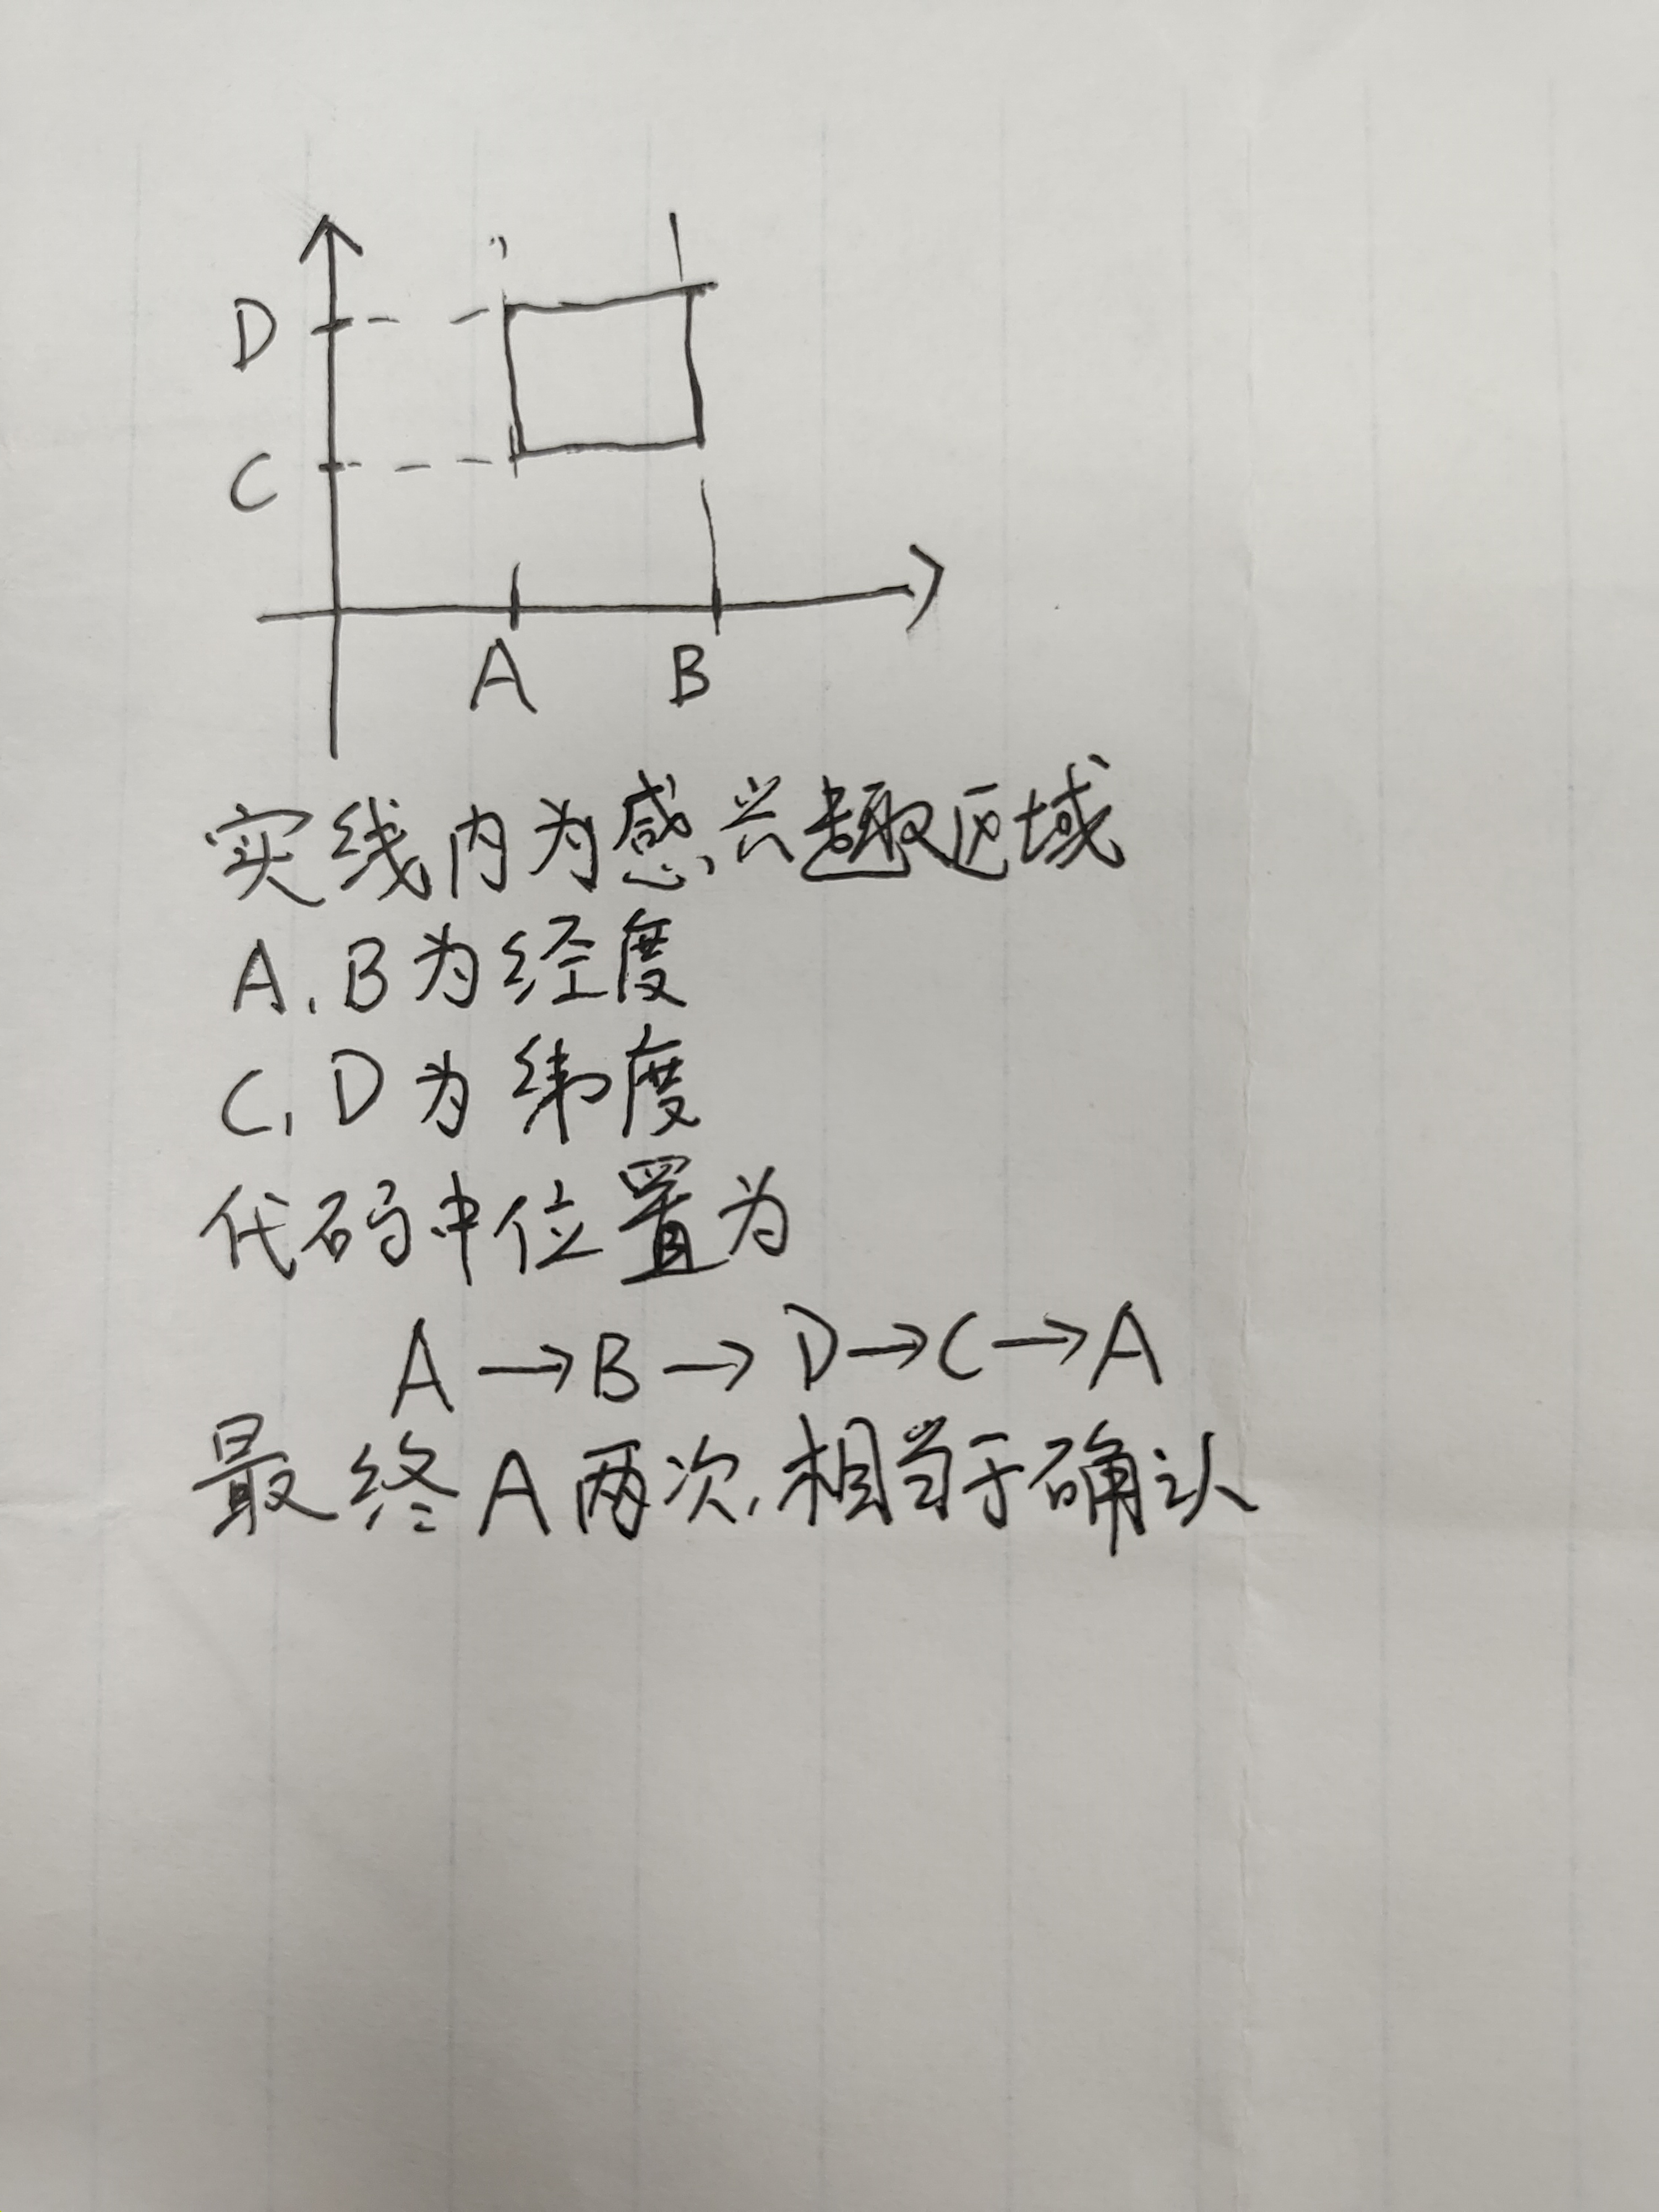 D
C
A B
实线内为感兴趣区域
A、B为经度
C、D为纬度
代码中位置为
A→B→D→C→A
最终A两次,相当于确认